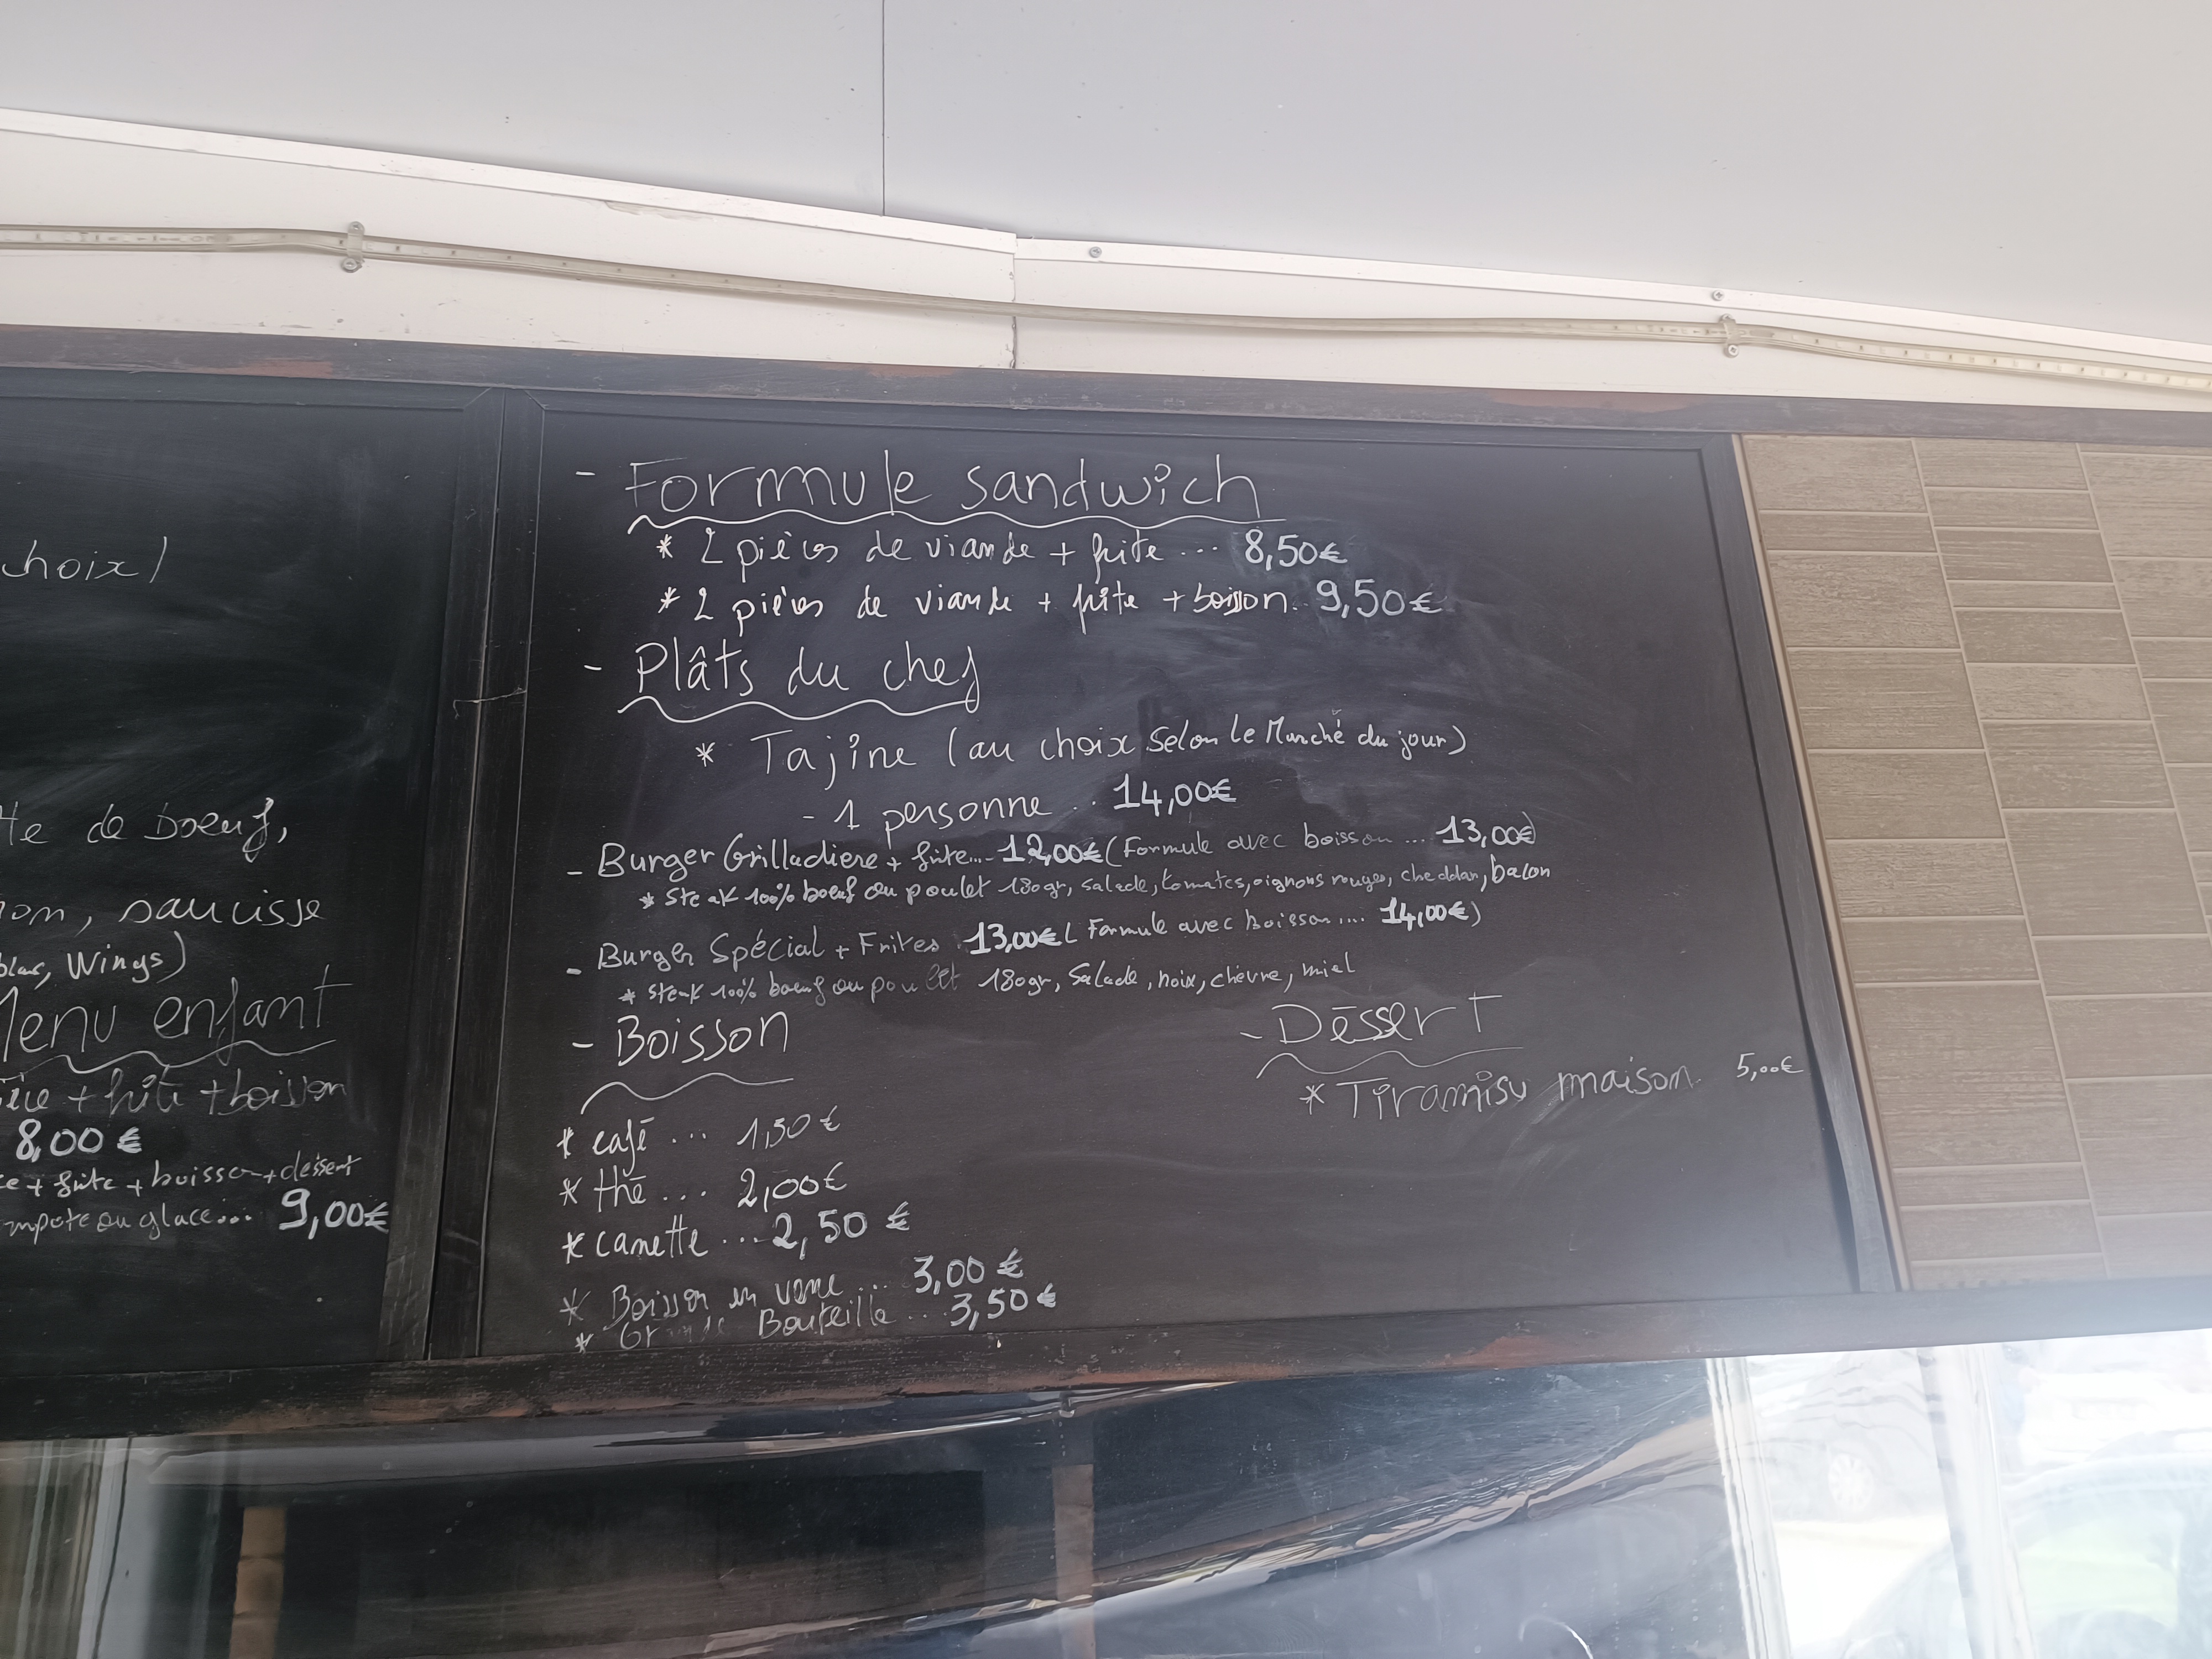 choix)
de boeuf,
saucisse
Wings)
Menu enfant
+ frite + boisson
8,00 €
+ frite + boisson + dessert
ou glace... 9,00€
- Formule sandwich
* 2 pièces de viande + frite ... 8,50€
* 2 pièces de viande + frite + boisson.. 9,50€
- Plâts du chef
* Tajine (au choix Selon Le Marché du jour)
- 1 personne .. 14,00€
- Burger Grilladiere + frite... 12,00€ (Formule avec boisson ... 13,00€)
* Steak 100% boeuf ou poulet 180gr, salade, tomates, oignons rouges, cheddar, bacon
- Burger Spécial + Frites . 13,00€ ( Formule avec boisson .... 14,00€)
* Steak 100% boeuf ou poulet 180gr, Salade, noix, chèvre, miel
- Boisson
* café ... 1,50€
* thé ... 2,00€
* canette ... 2,50 €
* Boisson en verre ... 3,00 €
* Grande Bouteille ... 3,50€
- Déssert
* Tiramisu maison 5,00€